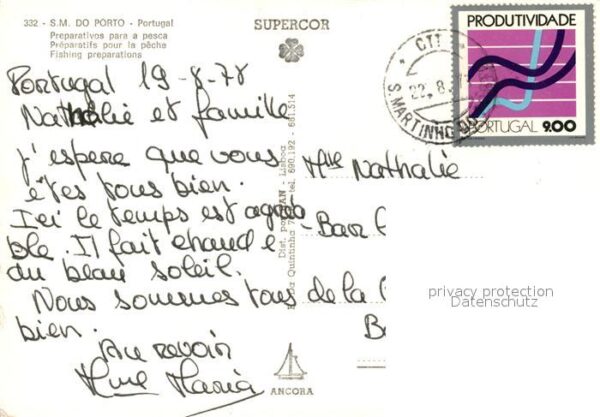 332 - S.M. DO PORTO - Portugal
Preparativos para a pesca
Préparatifs pour la pêche
Fishing preparations
SUPERCOR
PRODUTIVIDADE
PORTUGAL 9.00
CTT
22.8.
S. MARTINHO
Portugal 19-8-78
Nathalie et famille
j'espere que vous
êtes tous bien.
Ici le temps est agréa
ble. Il fait chaud e
du beau soleil.
Nous sommes tous
bien.
Au revoir
Mme Maria
Mlle Nathalie
- Bar
de la
Dist. por
Lisboa
Quintinha
tel. 690.192 - 661.514
ANCORA
privacy protection
Datenschutz